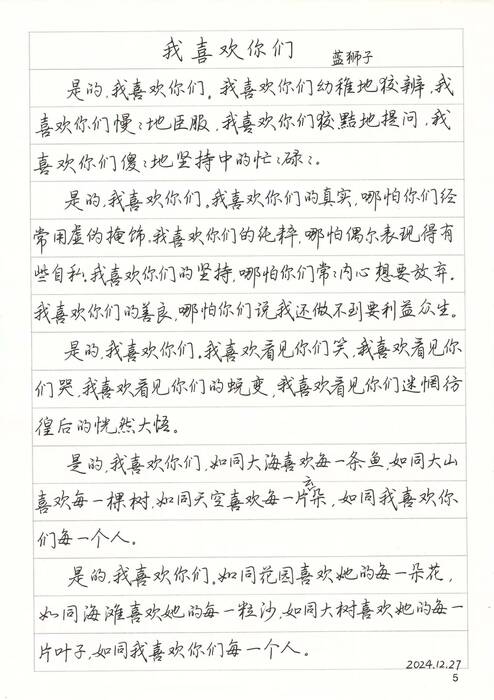 我喜欢你们 蓝狮子
是的，我喜欢你们。我喜欢你们幼稚地狡辨，我
喜欢你们慢〻地臣服，我喜欢你们狡黠地提问，我
喜欢你们傻〻地坚持中的忙〻碌〻。
是的，我喜欢你们。我喜欢你们的真实，哪怕你们经
常用虚伪掩饰。我喜欢你们的纯粹，哪怕偶尔表现得有
些自私。我喜欢你们的坚持，哪怕你们常〻内心想要放弃。
我喜欢你们的善良，哪怕你们说我还做不到要利益众生。
是的，我喜欢你们。我喜欢看见你们笑，我喜欢看见你
们哭，我喜欢看见你们的蜕变，我喜欢看见你们迷惘彷
徨后的恍然大悟。
是的，我喜欢你们，如同大海喜欢每一条鱼，如同大山
喜欢每一棵树，如同天空喜欢每一片云朵，如同我喜欢你
们每一个人。
是的，我喜欢你们。如同花园喜欢她的每一朵花，
如同海滩喜欢她的每一粒沙，如同大树喜欢她的每一
片叶子，如同我喜欢你们每一个人。
2024.12.27
5